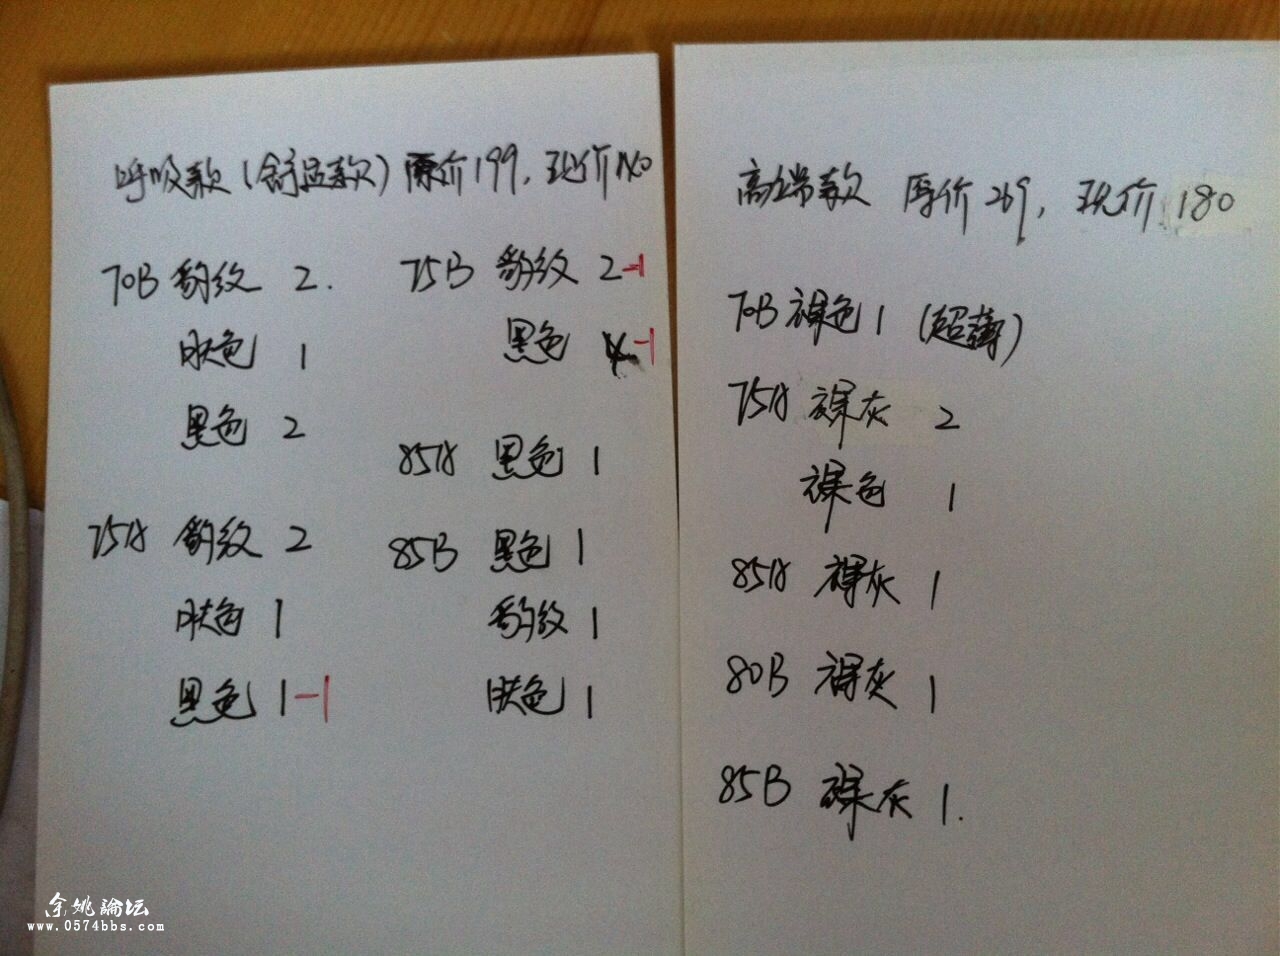 呼吸款(舒适款) 原价199, 现价140
70B 豹纹 2.
肤色 1
黑色 2
75A 豹纹 2
肤色 1
黑色 1-1
75B 豹纹 2-1
黑色 -1
85A 黑色 1
85B 黑色 1
豹纹 1
肤色 1
高端款 原价269, 现价180
70B 裸色 1 (超薄)
75A 裸灰 2
裸色 1
85A 裸灰 1
80B 裸灰 1
85B 裸灰 1.
余姚論坛
www.0574bbs.com